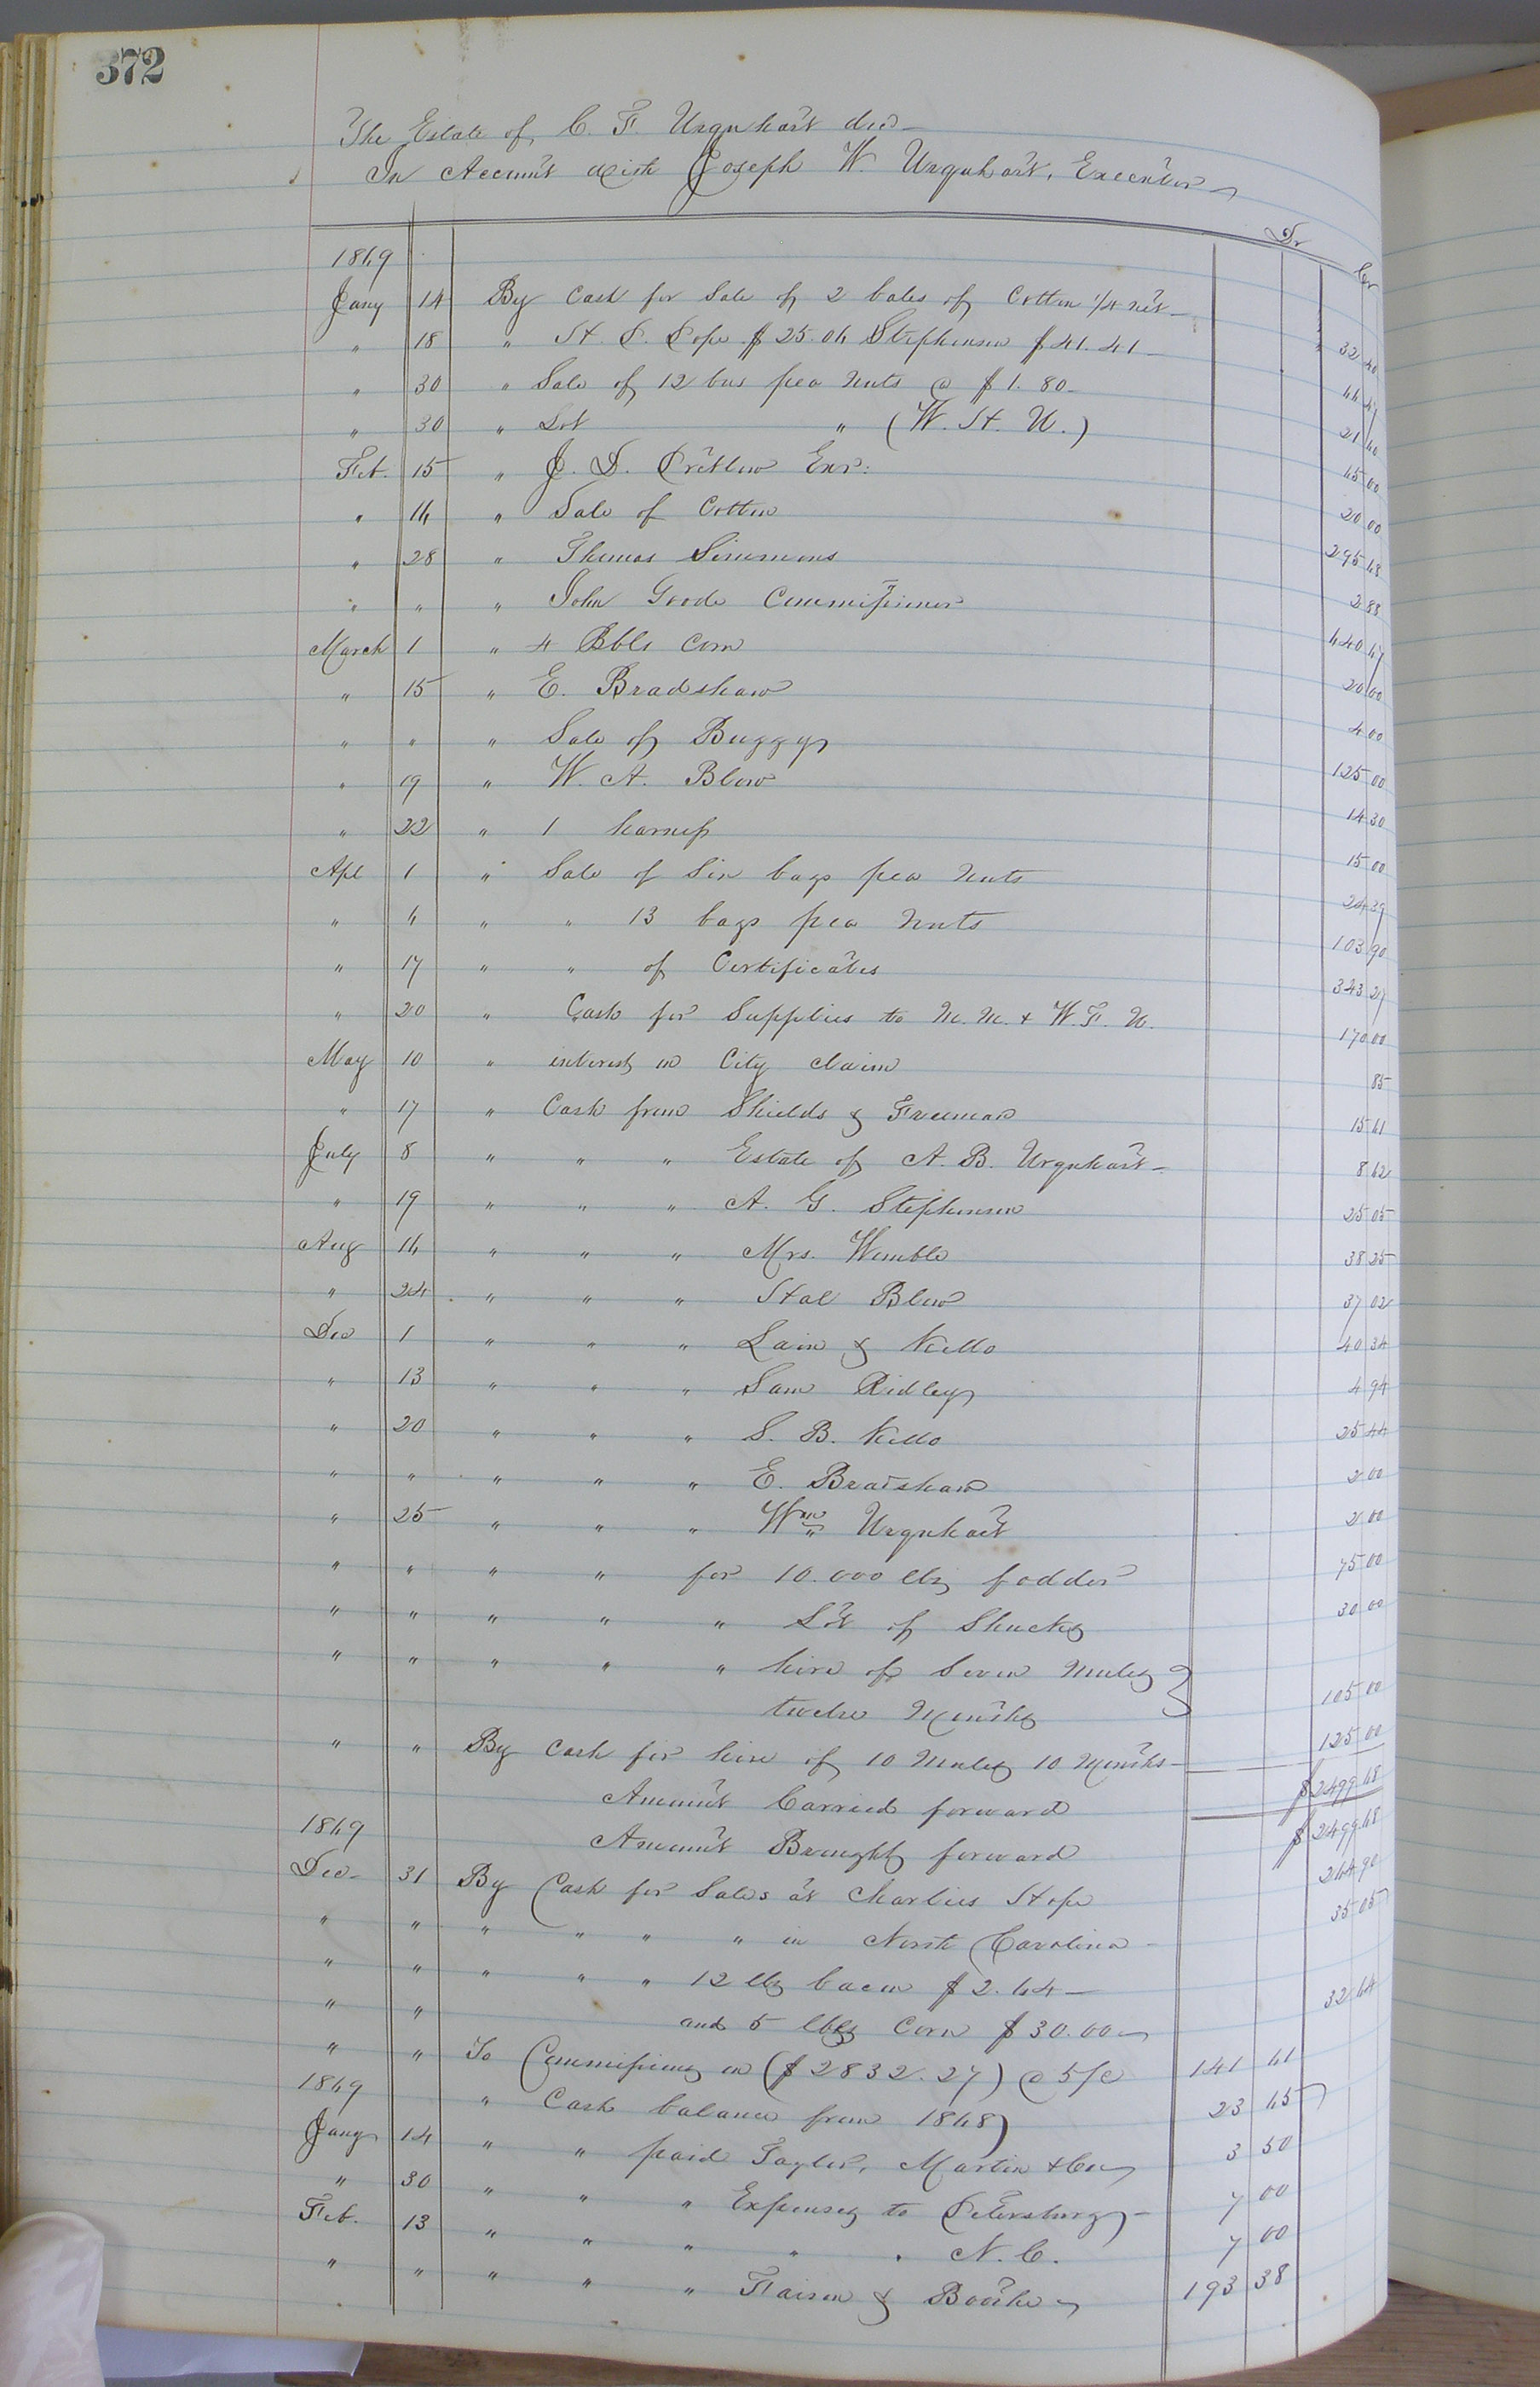 372
The Estate of C. F. Urquhart decd
In Account with Joseph W. Urquhart, Executor
Dr Cr
1869
Jany 14 By Cash for Sale of 2 bales of Cotton 1/4 net 32 40
" 18 " H. P. Pope $25.06 Stephenson $41.41 66 47
" 30 " Sale of 12 bus pea nuts @ $1.80 21 60
" 30 " Lot " (W. H. U.) 65 00
Feb. 15 " J. D. Pretlow Exr: 20 00
" 16 " Sale of Cotton 295 68
" 28 " Thomas Simmons 2 88
" " " John Goode Commissioner 640 67
March 1 " 4 Bbls Corn 20 00
" 15 " E. Bradshaw 4 00
" " " Sale of Buggy 125 00
" 19 " W. A. Blow 14 30
" 22 " 1 harness 15 00
Apl 1 " Sale of Six bags pea nuts 24 39
" 6 " " 13 bags pea nuts 103 90
" 17 " " of Certificates 343 27
" 20 " Cash for Supplies to M. M. & W. F. U. 170 00
May 10 " interest on City claim 85
" 17 " Cash from Shields & Freeman 15 61
July 8 " " " Estate of A. B. Urquhart 8 62
" 19 " " " A. G. Stephenson 25 05
Aug 16 " " " Mrs. Womble 38 25
" 24 " " " Hal Blow 37 02
Dec 1 " " " Lain & Kello 40 34
" 13 " " " Sam Ridley 4 94
" 20 " " " S. B. Kello 25 44
" " " " " E. Bradshaw 2 00
" 25 " " " Wm Urquhart 2 00
" " " " for 10.000 lbs fodder 75 00
" " " " " Lot of Shucks 30 00
" " " " " hire of Seven Mules
twelve Months 105 00
" " By Cash for hire of 10 Mules 10 Months 125 00
Amount Carried forward $2499 68
1869 Amount Brought forward $2499 68
Dec 31 By Cash for Sales at Charlies Hope 264 90
" " " " " " in North Carolina 35 05
" " " " " 12 lbs bacon $2.64
" " and 5 bbls Corn $30.00 32 64
" " To Commissions on ($2832.27) @ 5/c 141 61
1869 " Cash balance from 1868 23 65
Jany 14 " " paid Taylor, Martin & Co 3 50
" 30 " " " Expenses to Petersburg 7 00
Feb. 13 " " " " " N. C. 7 00
" " " " " Faison & Boothe 193 38